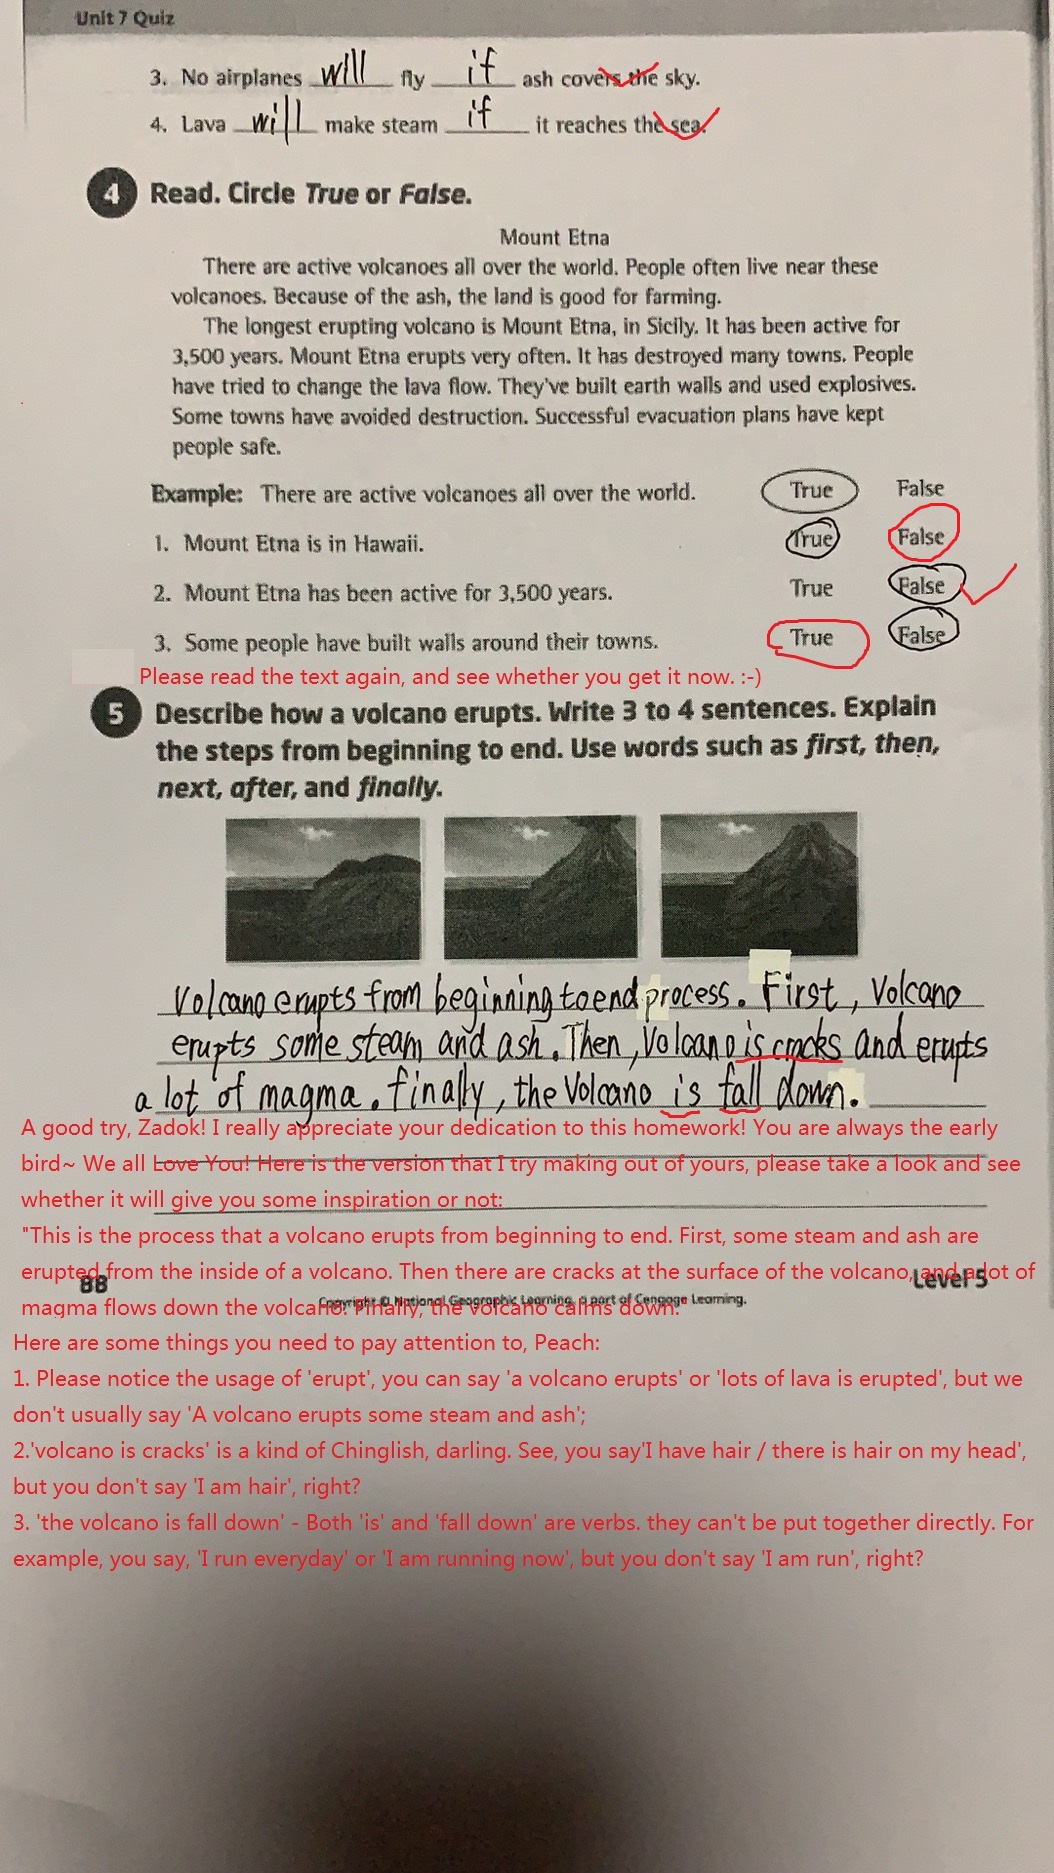 Unit 7 Quiz
3. No airplanes will fly if ash covers the sky.
4. Lava will make steam if it reaches the sea.
4 Read. Circle True or False.
Mount Etna
There are active volcanoes all over the world. People often live near these
volcanoes. Because of the ash, the land is good for farming.
The longest erupting volcano is Mount Etna, in Sicily. It has been active for
3,500 years. Mount Etna erupts very often. It has destroyed many towns. People
have tried to change the lava flow. They've built earth walls and used explosives.
Some towns have avoided destruction. Successful evacuation plans have kept
people safe.
Example: There are active volcanoes all over the world. True False
1. Mount Etna is in Hawaii. True False
2. Mount Etna has been active for 3,500 years. True False
3. Some people have built walls around their towns. True False
Please read the text again, and see whether you get it now. :-)
5 Describe how a volcano erupts. Write 3 to 4 sentences. Explain
the steps from beginning to end. Use words such as first, then,
next, after, and finally.
Volcano erupts from beginning to end process. First, Volcano
erupts some steam and ash. Then, Volcano is cracks and erupts
a lot of magma. finally, the Volcano is fall down.
A good try, Zadok! I really appreciate your dedication to this homework! You are always the early
bird~ We all Love You! Here is the version that I try making out of yours, please take a look and see
whether it will give you some inspiration or not:
"This is the process that a volcano erupts from beginning to end. First, some steam and ash are
erupted from the inside of a volcano. Then there are cracks at the surface of the volcano, and a lot of
88 Level 5
magma flows down the volcano. Finally, the volcano calms down.
Copyright © National Geographic Learning, a part of Cengage Learning.
Here are some things you need to pay attention to, Peach:
1. Please notice the usage of 'erupt', you can say 'a volcano erupts' or 'lots of lava is erupted', but we
don't usually say 'A volcano erupts some steam and ash';
2.'volcano is cracks' is a kind of Chinglish, darling. See, you say'I have hair / there is hair on my head',
but you don't say 'I am hair', right?
3. 'the volcano is fall down' - Both 'is' and 'fall down' are verbs. they can't be put together directly. For
example, you say, 'I run everyday' or 'I am running now', but you don't say 'I am run', right?